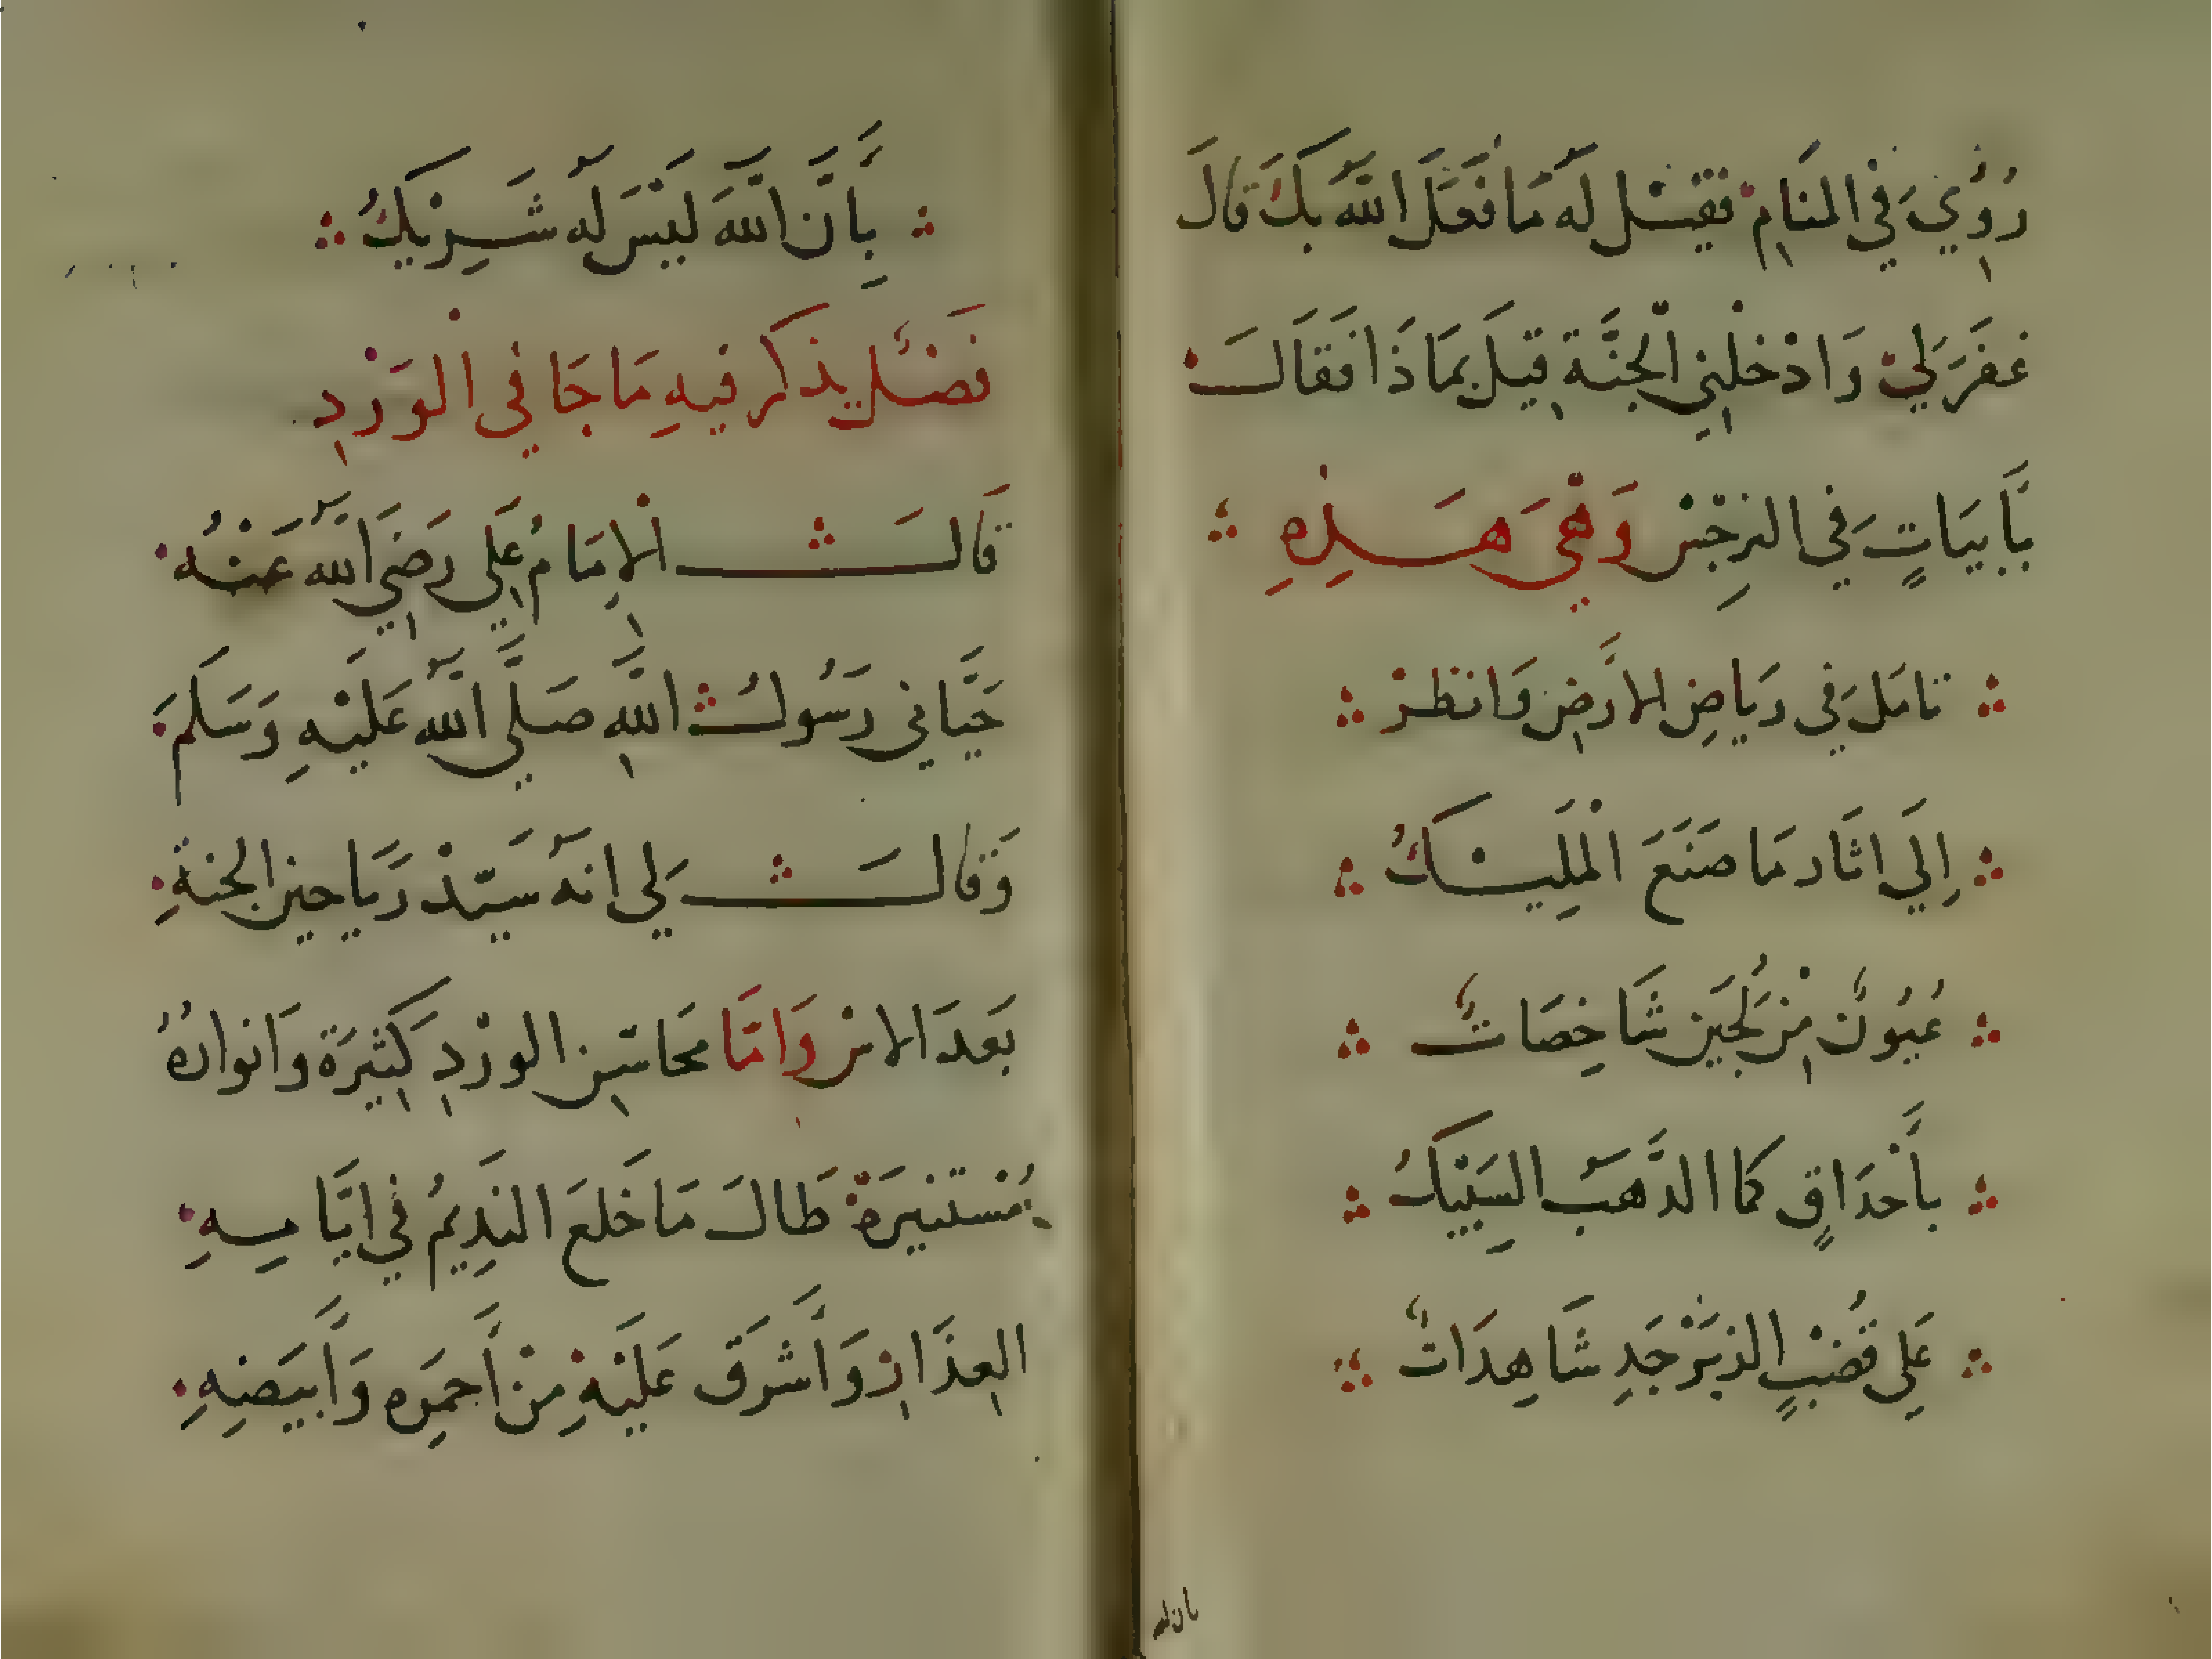 رُؤِيَ في المنَامِ فقيْل لهُ مَا فَعَلَ اللهُ بِكَ قَالَ
غفَرَ لي وَادْخَلَنِي الْجَنَّةَ قِيلَ بمَاذَا فَقَالَ
بأَبيَاتٍ في النرجْسِ وَهْيَ هَذِهِ
تامَل في ريَاضِ الارَضِ وَانظرْ
إِلَي اثَار مَا صَنَعَ الْمَلِيْكُ
عُيُونٌ مِنْ لُجَين شَاخِصَاتٌ
بأَحْدَاقٍ كما الذَّهَبُ السَبِيْكُ
عَلي قُضْبٍ الزبَرْجَدِ شَاهِدَاتٌ
بان الله
بِأَنَّ اللهَ لَيْسَ لهُ شَرِيْكُ
فَصْلٌ يذكر فيهِ مَا جَا في الْوَرْدِ
قَالَ الْاِمَامُ عَلِي رَضِيَ اللهُ عَنْهُ
حَيَّاني رَسُولُ اللهِ صَلَّي اللهُ عَلَيْهِ وَسَلَم
وَقَالَ لي انهُ سَيّدْ رَيَاحِين الجنةِ
بَعدَ الاسْ وَامَّا محَاسِن الورْدِ كَثِيْرَة وَانوارُهُ
مُسْتنيرَةٌ طَالَ مَا خَلَعَ النَدِيمُ في ايَّامِهِ
العِذَارِ وَأَشْرَقَ عَلَيْهِ مِنْ أَحمَرِه وَأَبيَضِهِ